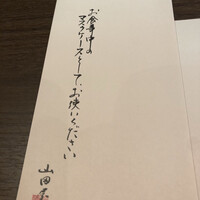 お食事中の
マスクケースとして、お使いください
山田